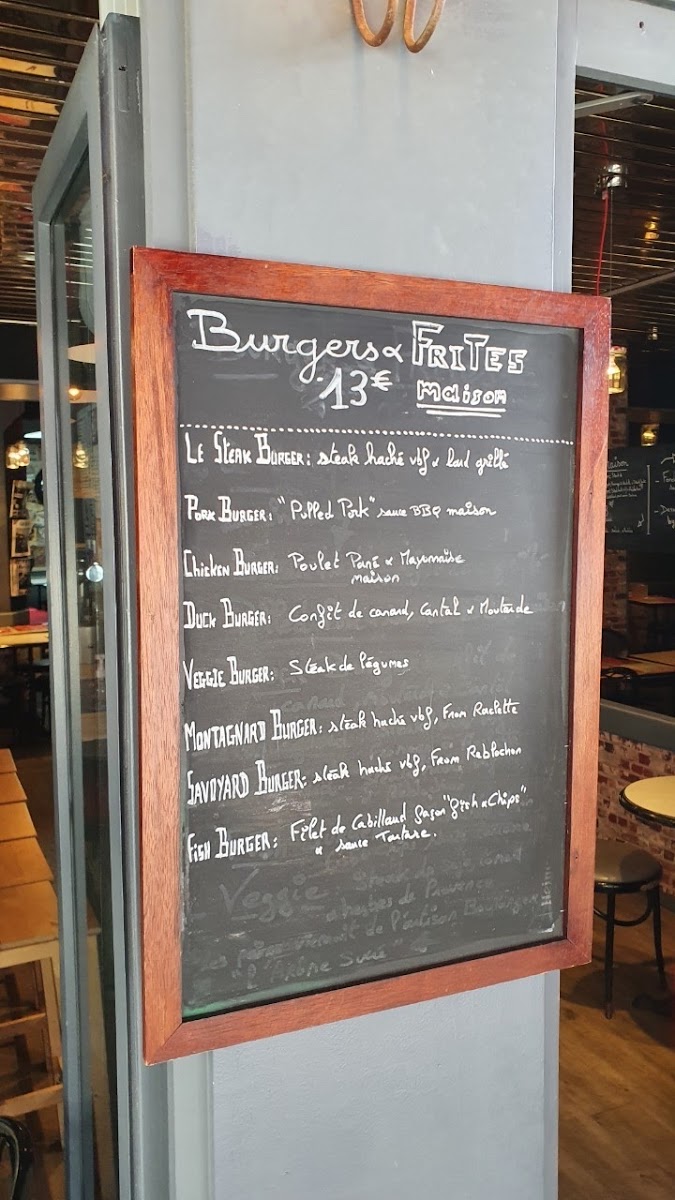 Burgers & FRITES
13€ maison
LE STEAK BURGER: steak haché vbf & lard grillé
PORK BURGER: "Pulled Pork" sauce BBQ maison
CHICKEN BURGER: Poulet Pané & Mayonnaise
maison
DUCK BURGER: Confit de canard, Cantal & Moutarde
VEGGIE BURGER: Steak de légumes
MONTAGNARD BURGER: steak haché vbf, From Raclette
SAVOYARD BURGER: steak haché vbf, From Reblochon
FISH BURGER: Filet de Cabillaud façon "fish & Chips"
& sauce Tartare.
Veggie steak de
herbes de Provence
les pains viennent de l'artisan Boulanger
"l'Arôme Sucré"